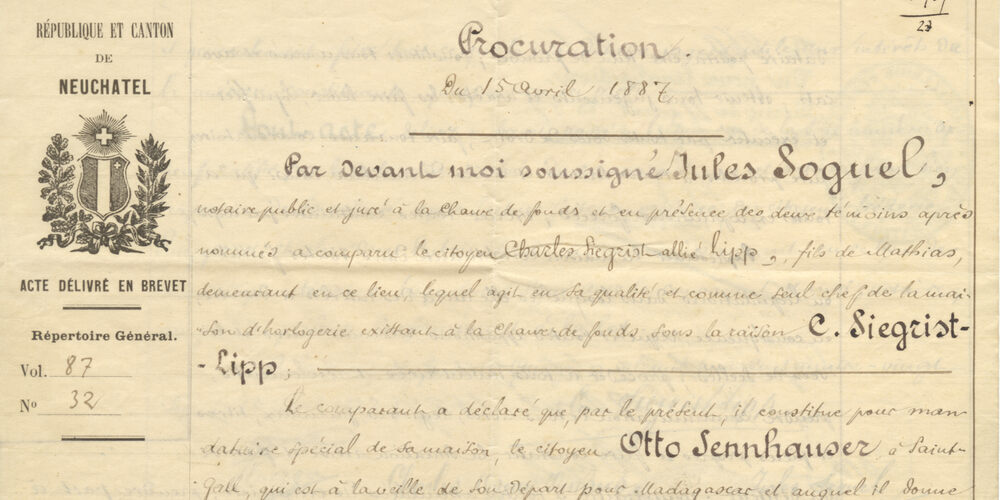 27
RÉPUBLIQUE ET CANTON
DE
NEUCHATEL
ACTE DÉLIVRÉ EN BREVET
Répertoire Général.
Vol. 87
No 32
Procuration
Du 15 Avril 1887
Par devant moi soussigné Jules Soguel,
notaire public et juré à la Chaux de fonds et en présence des deux témoins après
nommés a comparu le citoyen Charles Siegrist allié Lipp, fils de Mathias,
demeurant en ce lieu, lequel agit en sa qualité et comme seul chef de la mai-
son d'horlogerie existant à la Chaux-de-fonds sous la raison C. Siegrist-
-Lipp.
Le comparant a déclaré que, par le présent, il constitue pour man-
dataire spécial de sa maison, le citoyen Otto Sennhauser à Saint-
Gall, qui est à la veille de son départ pour Madagascar et auquel il donne